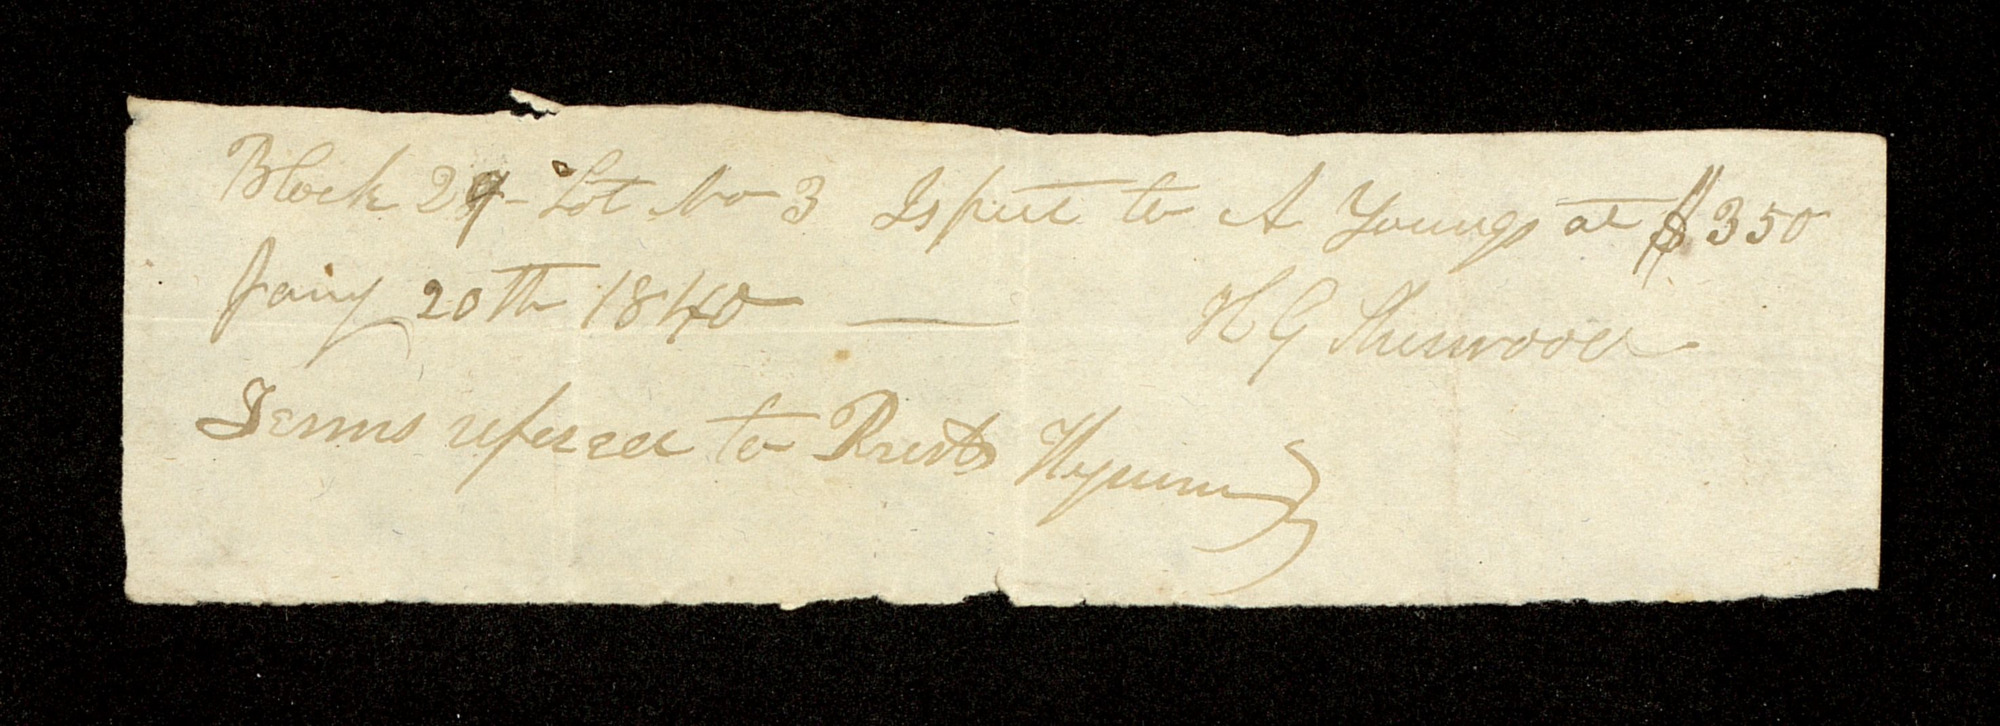 Block 29 - Lot No 3 Is put to A Youngs at $350
Jany 20th 1840 — H G Sherwood
Terms refered to Prest Hyrum